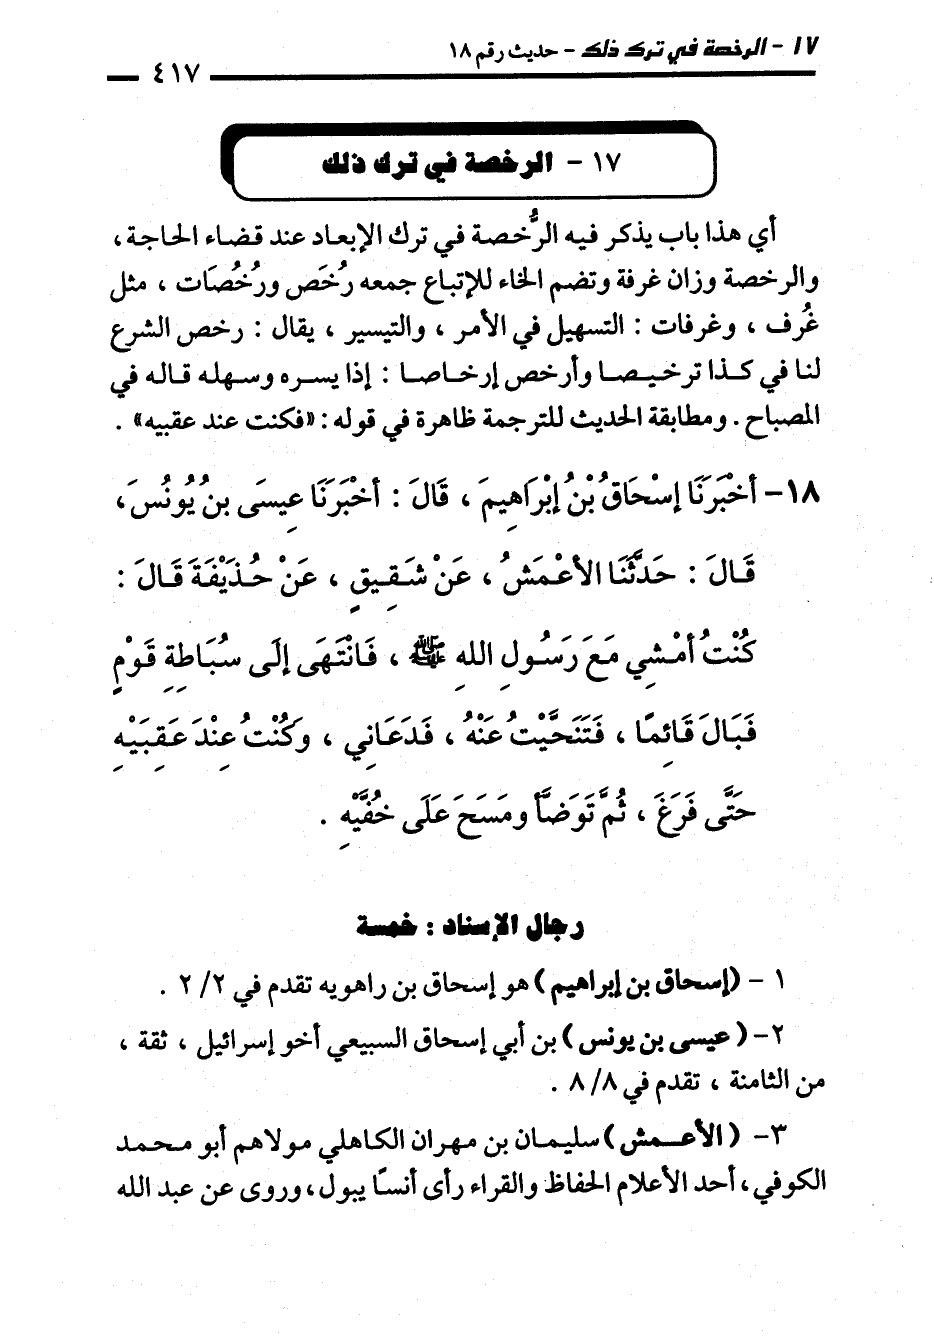 ١٧ - الرخصة في ترك ذلك - حديث رقم ١٨
٤١٧
١٧ - الرخصة في ترك ذلك
أي هذا باب يذكر فيه الرُّخصة في ترك الإبعاد عند قضاء الحاجة،
والرخصة وزان غرفة وتضم الخاء للإتباع جمعه رُخَص ورُخُصَات ، مثل
غُرف ، وغرفات : التسهيل في الأمر ، والتيسير ، يقال : رخص الشرع
لنا في كذا ترخيصا وأرخص إرخاصا : إذا يسره وسهله قاله في
المصباح . ومطابقة الحديث للترجمة ظاهرة في قوله : «فكنت عند عقبيه» .
١٨- أَخْبَرَنَا إِسْحَاقُ بْنُ إِبْرَاهِيمَ ، قَالَ : أَخْبَرَنَا عِيسَى بنُ يُونُسَ،
قَالَ : حَدَّثَنَا الأعْمَشُ ، عَنْ شَقِيقٍ ، عَنْ حُذَيْفَةَ قَالَ :
كُنْتُ أَمْشِي مَعَ رَسُولِ اللهِ ﷺ ، فَانْتَهَى إِلَى سُبَاطَةِ قَوْمٍ
فَبَالَ قَائِمًا ، فَتَنَحَّيْتُ عَنْهُ ، فَدَعَانِي ، وَكُنْتُ عِنْدَ عَقِبَيْهِ
حَتَّى فَرَغَ ، ثُمَّ تَوَضَّأَ ومَسَحَ عَلَى خُفَّيْهِ .
رجال الإسناد : خمسة
١ - (إسحاق بن إبراهيم) هو إسحاق بن راهويه تقدم في ٢/٢ .
٢- (عيسى بن يونس) بن أبي إسحاق السبيعي أخو إسرائيل ، ثقة ،
من الثامنة ، تقدم في ٨/٨ .
٣- (الأعمش) سليمان بن مهران الكاهلي مولاهم أبو محمد
الكوفي، أحد الأعلام الحفاظ والقراء رأى أنسًا يبول، وروى عن عبد الله